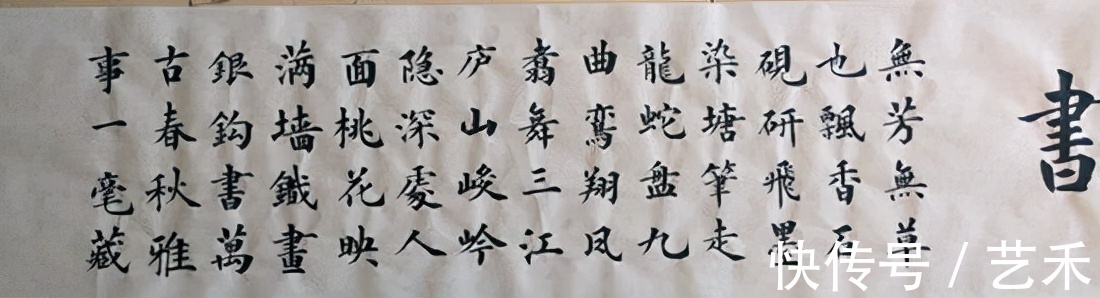 書
無芳無草
也飄香石
硯研飛墨
染塘筆走
龍蛇盤九
曲鸞翔凤
翥舞三江
庐山峻岭
隐深處人
面桃花映
满墙鐡畫
銀鈎書萬
古春秋雅
事一毫藏
快传号 / 艺禾